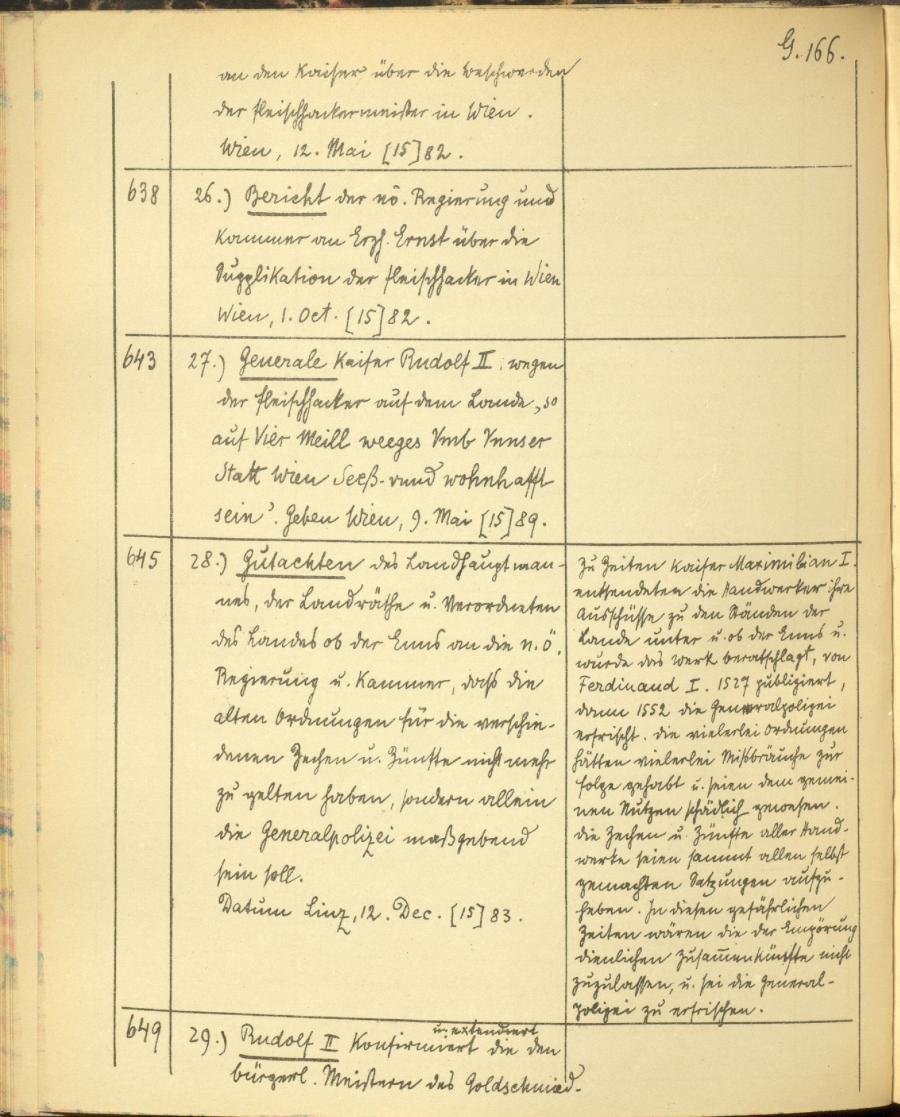 G. 166.
an den Kaiser über die Beschwerden
der Fleischhackermeister in Wien.
Wien, 12. Mai [15]82.
638
26.) Bericht der nö. Regierung und
Kammer an Erzh. Ernst über die
Supplikation der Fleischhacker in Wien
Wien, 1. Oct. [15]82.
643
27.) Generale Kaiser Rudolf II. wegen
der Fleischhacker auf dem Lande, „so
auf Vier Meill weeges Vmb Vnnser
Statt Wien Seeß- vnnd wohnhafft
sein". Geben Wien, 9. Mai [15]89.
645
28.) Gutachten des Landhauptman-
nes, der Landräthe u. Verordneten
des Landes ob der Enns an die n.ö.
Regierung u. Kammer, dass die
alten Ordnungen für die verschie-
denen Zechen u. Zünfte nicht mehr
zu gelten haben, sondern allein
die Generalpolizei maßgebend
sein soll.
Datum Linz, 12. Dec. [15]83.
Zu Zeiten Kaiser Maximilian I.
entsendeten die Handwerker ihre
Ausschüsse zu den Ständen der
Lande unter u. ob der Enns u.
wurde das Werk beratschlagt, von
Ferdinand I. 1527 publiziert,
dann 1552 die Generalpolizei
erfrischt. Die vielerlei Ordnungen
hätten vielerlei Mißbräuche zur
Folge gehabt u. seien dem gemei-
nen Nutzen schädlich gewesen.
Die Zechen u. Zünfte aller Hand-
werke seien sammt allen selbst
gemachten Satzungen aufzu-
heben. In diesen gefährlichen
Zeiten wären die der Empörung
dienlichen Zusammenkünfte nicht
zuzulassen, u. sei die General-
polizei zu erfrischen.
649
29.) Rudolf II konfirmiert u. extendiert die den
bürgerl. Meistern des Goldschmied-